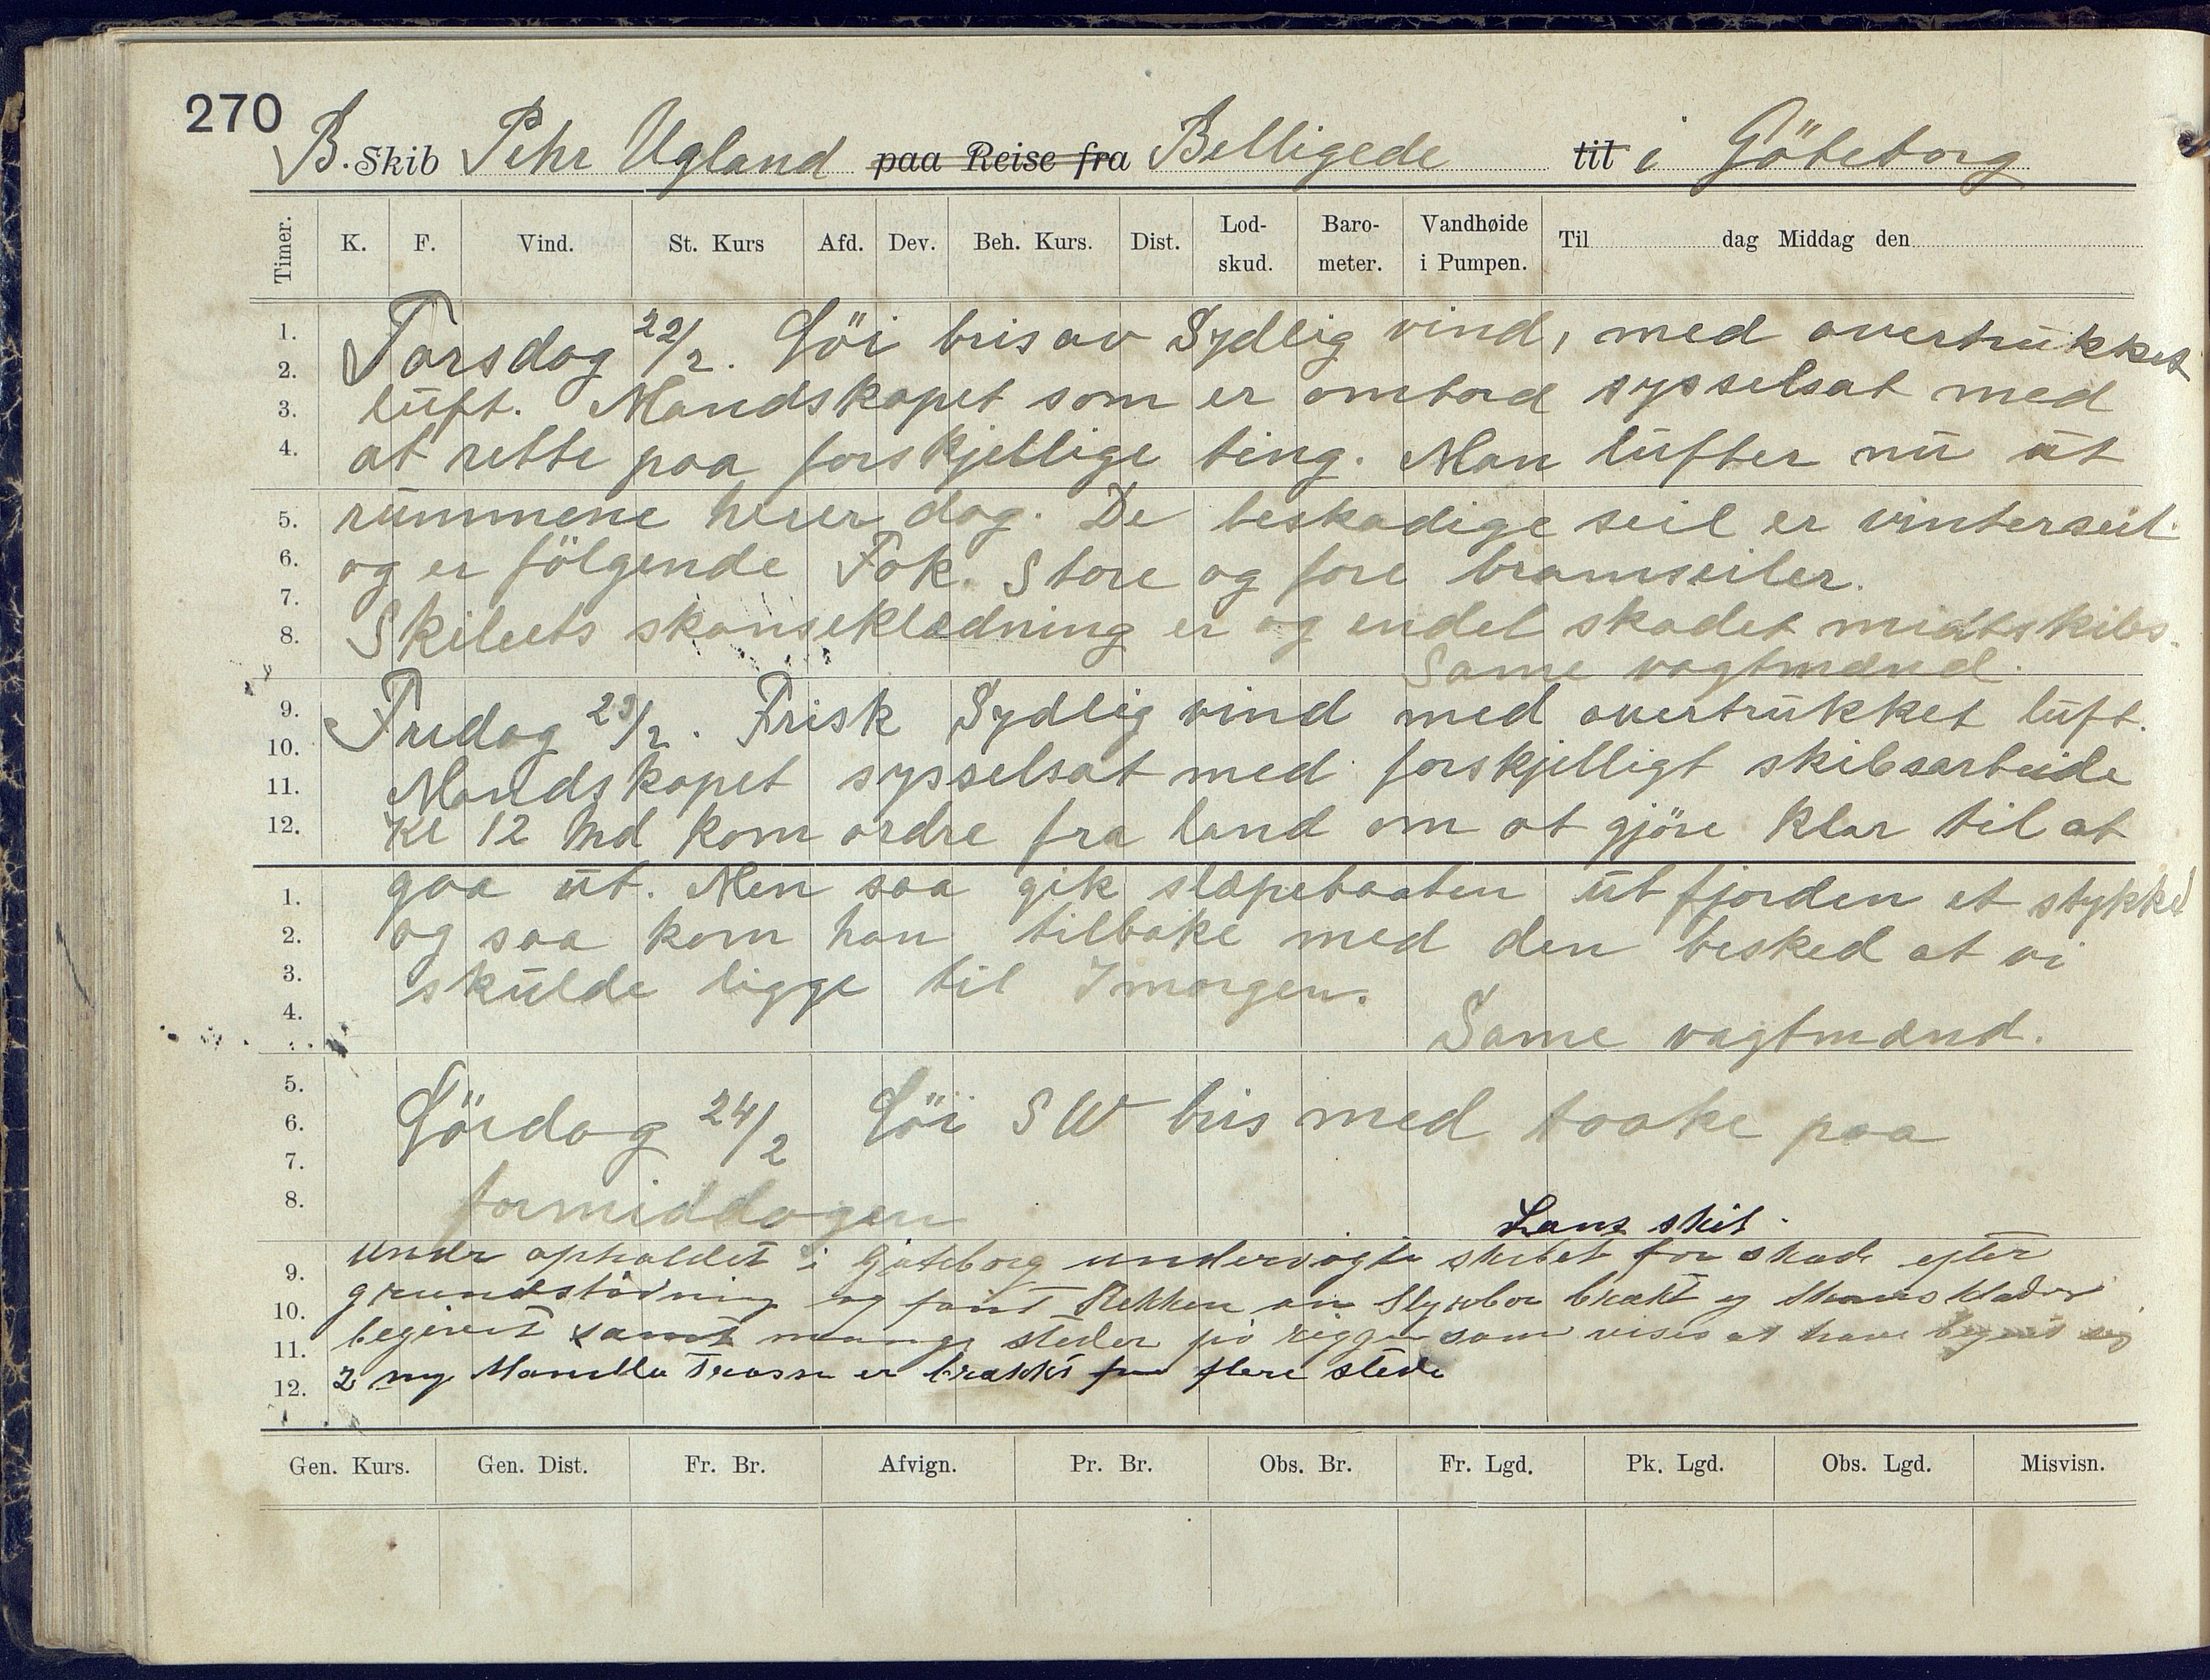 270
B. Skib Pehr Ugland paa Reise fra Belligede til i Göteborg
Timer. K. F. Vind. St. Kurs Afd. Dev. Beh. Kurs. Dist. Lod-skud. Baro-meter. Vandhøide i Pumpen. Til dag Middag den
1.
2.
3.
4.
5.
6.
7.
8.
9.
10.
11.
12.
Torsdag 22/2. Löi bris av Sydlig vind, med overtrukket
luft. Mandskapet som er ombord sysselsat med
at rette paa forskjellige ting. Man lufter nu ut
rummene hver dag. De beskadige seil er vinterseil
og er fölgende Fok. Store og fore bramseiler.
Skibets skanseklædning er og endel skadet midtskibs.
Same vagtmænd.
Fredag 23/2. Frisk Sydlig vind med overtrukket luft.
Mandskapet sysselsat med forskjelligt skibsarbeide
Kl 12 Md kom ordre fra land om at gjöre klar til at
1.
2.
3.
4.
5.
6.
7.
8.
9.
10.
11.
12.
gaa ut. Men saa gik slæpebaaten ut fjorden et stykke
og saa kom han tilbake med den besked at vi
skulde ligge til Imorgen.
Same vagtmænd.
Lördag 24/2 Löi SW bris med taake paa
formiddagen
Lans skib.
Under opholdet i Gjøteborg undersøgte skibet for skade efter
grundstødning og fant Rekken Styrbor brækt og Skansklæder
samt mange steder på riggen som vises at have
2 ny Manilla Trosser er brækkt flere stede
Gen. Kurs. Gen. Dist. Fr. Br. Afvign. Pr. Br. Obs. Br. Fr. Lgd. Pk. Lgd. Obs. Lgd. Misvisn.